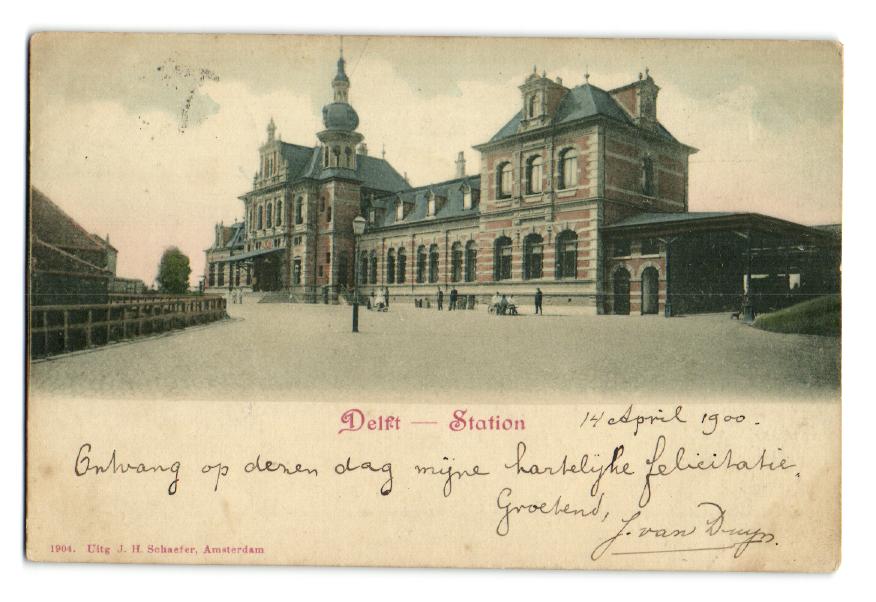 Delft — Station
14 April 1900.
Ontvang op dezen dag mijne hartelijke felicitatie,
Groetend,
J. van Duyn.
1904. Uitg J. H. Schaefer, Amsterdam